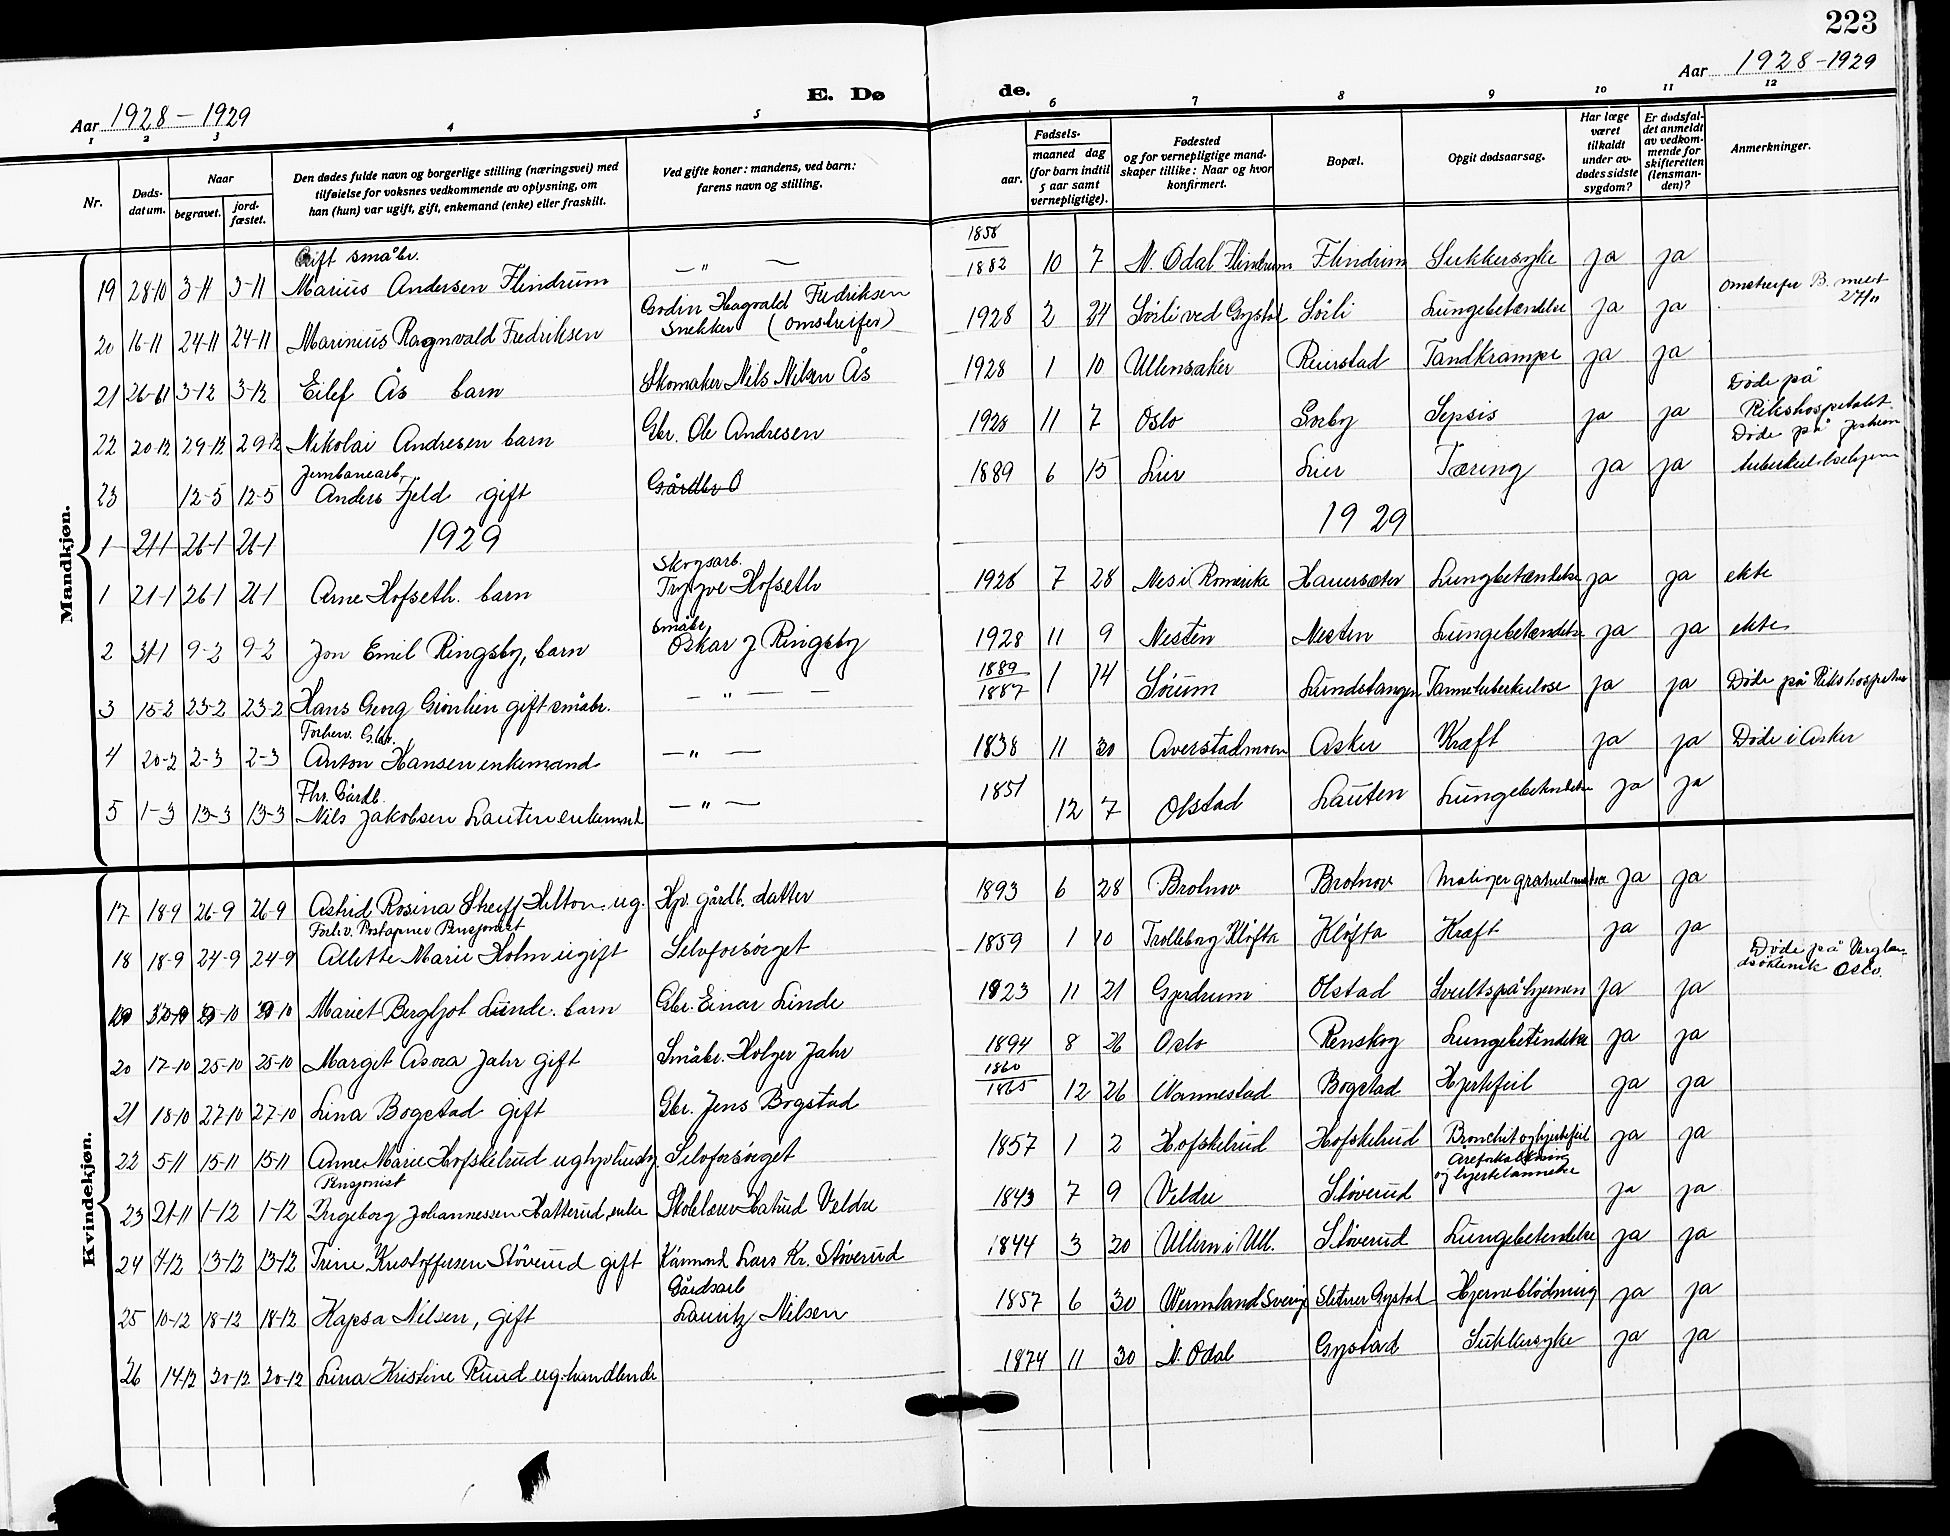 223
Aar 1928-1929
Aar 1928-1929
E. Dø de.
1 2 3 4 5 6 7 8 9 10 11 12
Nr.
Døds-
datum.
Naar
begravet.
jord-
fæstet.
Den dødes fulde navn og borgerlige stilling (næringsvei) med
tilføielse for voksnes vedkommende av oplysning, om
han (hun) var ugift, gift, enkemand (enke) eller fraskilt.
Ved gifte koner: mandens, ved barn:
farens navn og stilling.
Fødsels-
aar.
maaned dag
(for barn indtil
5 aar samt
vernepligtige).
Fødested
og for vernepligtige mand-
skaper tillike: Naar og hvor
konfirmert.
Bopæl.
Opgit dødsaarsag.
Har læge
været
tilkaldt
under av-
dødes sidste
sygdom?
Er dødsfal-
det anmeldt
av vedkom-
mende for
skifteretten
(lensman-
den)?
Anmerkninger.
Mandkjøn.
Gift småbr.
19 28-10 3-11 3-11 Marius Andersen Flindrum — " — 1882 10 7 N. Odal Flindrum Flindrum Sukkersyke ja ja
20 16-11 24-11 24-11 Marinius Ragnvald Fredriksen Hagvald Fredriksen
Snekker (omstreifer) 1928 2 24 Sørli ved Gystad Sørli Lungebetændelse ja ja
21 26-11 3-12 3-12 Eilef Ås barn Skomaker Nils Nilsen Ås 1928 1 10 Ullensaker Reierstad Tandkrampe ja ja
22 20-12 29-12 29-12 Nikolai Andresen barn Gbr. Ole Andresen 1928 11 7 Oslo Sepsis ja ja Døde på
Rikshospitalet
Jernbanearb.
23 12-5 12-5 Anders Fjeld gift Gårdbr O 1889 6 15 Lier Lier Tæring ja ja Døde på
1 21-1 26-1 26-1 1929 1929
Skogsarb.
1 21-1 26-1 26-1 Arne Hofseth. barn Trygve Hofseth 1928 7 28 Nes i Romerike Hauersæter Lungbetændelse ja ja ekte
Småbr.
2 31-1 9-2 9-2 Jon Emil Ringsby, barn Oskar J Ringsby 1928 11 9 Nesten Nesten Lungebetændelse ja ja ekte
1889
3 15-2 23-2 23-2 Hans Georg gift småbr. — " — — 1887 1 14 Sørum Lundstangen ja ja Døde på Rikshospitalet
4 20-2 2-3 2-3 Anton Hansen enkemand — " — 1838 11 30 Averstadmoen Asker Kræft ja ja Døde i Asker
Fhv. Gårdb.
5 1-3 13-3 13-3 Nils Jakobsen Lauten enkemand — " — 1851 12 7 Olstad Lauten Lungebetendelse ja ja
Kvindekjøn.
17 18-9 26-9 26-9 Astrid Rosina Hilton. ug. gårdb. datter 1893 6 28 Brotnov Brotnov ja ja
Forhv. Postapner Pensjonist
18 18-9 24-9 24-9 Alette Marie Holm ugift Selvforsørget 1859 1 10 Trollborg Kløfta Kløfta Kræft ja ja
19 Mariet Bergljot Lunde. barn Gbr. Einar Lunde 1923 11 21 Gjerdrum Olstad ja ja Døde på
Oslo.
20 17-10 25-10 25-10 Margit Asora Jahr gift Småbr. Holger Jahr 1894 8 26 Oslo Renskog Lungebetendelse ja ja
1860
21 18-10 27-10 27-10 Lina Bogstad gift Gbr. Jens Bogstad 1865 12 26 Nannestad Bogstad Hjertefeil ja ja
22 5-11 15-11 15-11 Anne Marie Hofskelrud Selvforsørget 1857 1 2 Hofskelrud Hofskelrud Bronchit og hjertefeil ja ja
Pensjonist
23 21-11 1-12 1-12 Ingeborg Johannessen Hatterud, enke Veldre 1843 7 9 Veldre Støverud Åreforkalkning
og hjertelammelse ja ja
24 7-12 13-12 13-12 Trine Kristoffersen Støverud gift Kårmand Lars Kr. Støverud 1844 3 20 Ullern i Ull. Støverud Lungebetendelse ja ja
Gårdsarb
25 10-12 18-12 18-12 Kapsa Nilsen, gift Lauritz Nilsen 1857 6 30 Wermland Sverige Gystad Hjerneblødning ja ja
26 14-12 20-12 20-12 Lina Kristine Ruud ug. handlende 1874 11 30 N. Odal Gystad Sukkersyke ja ja